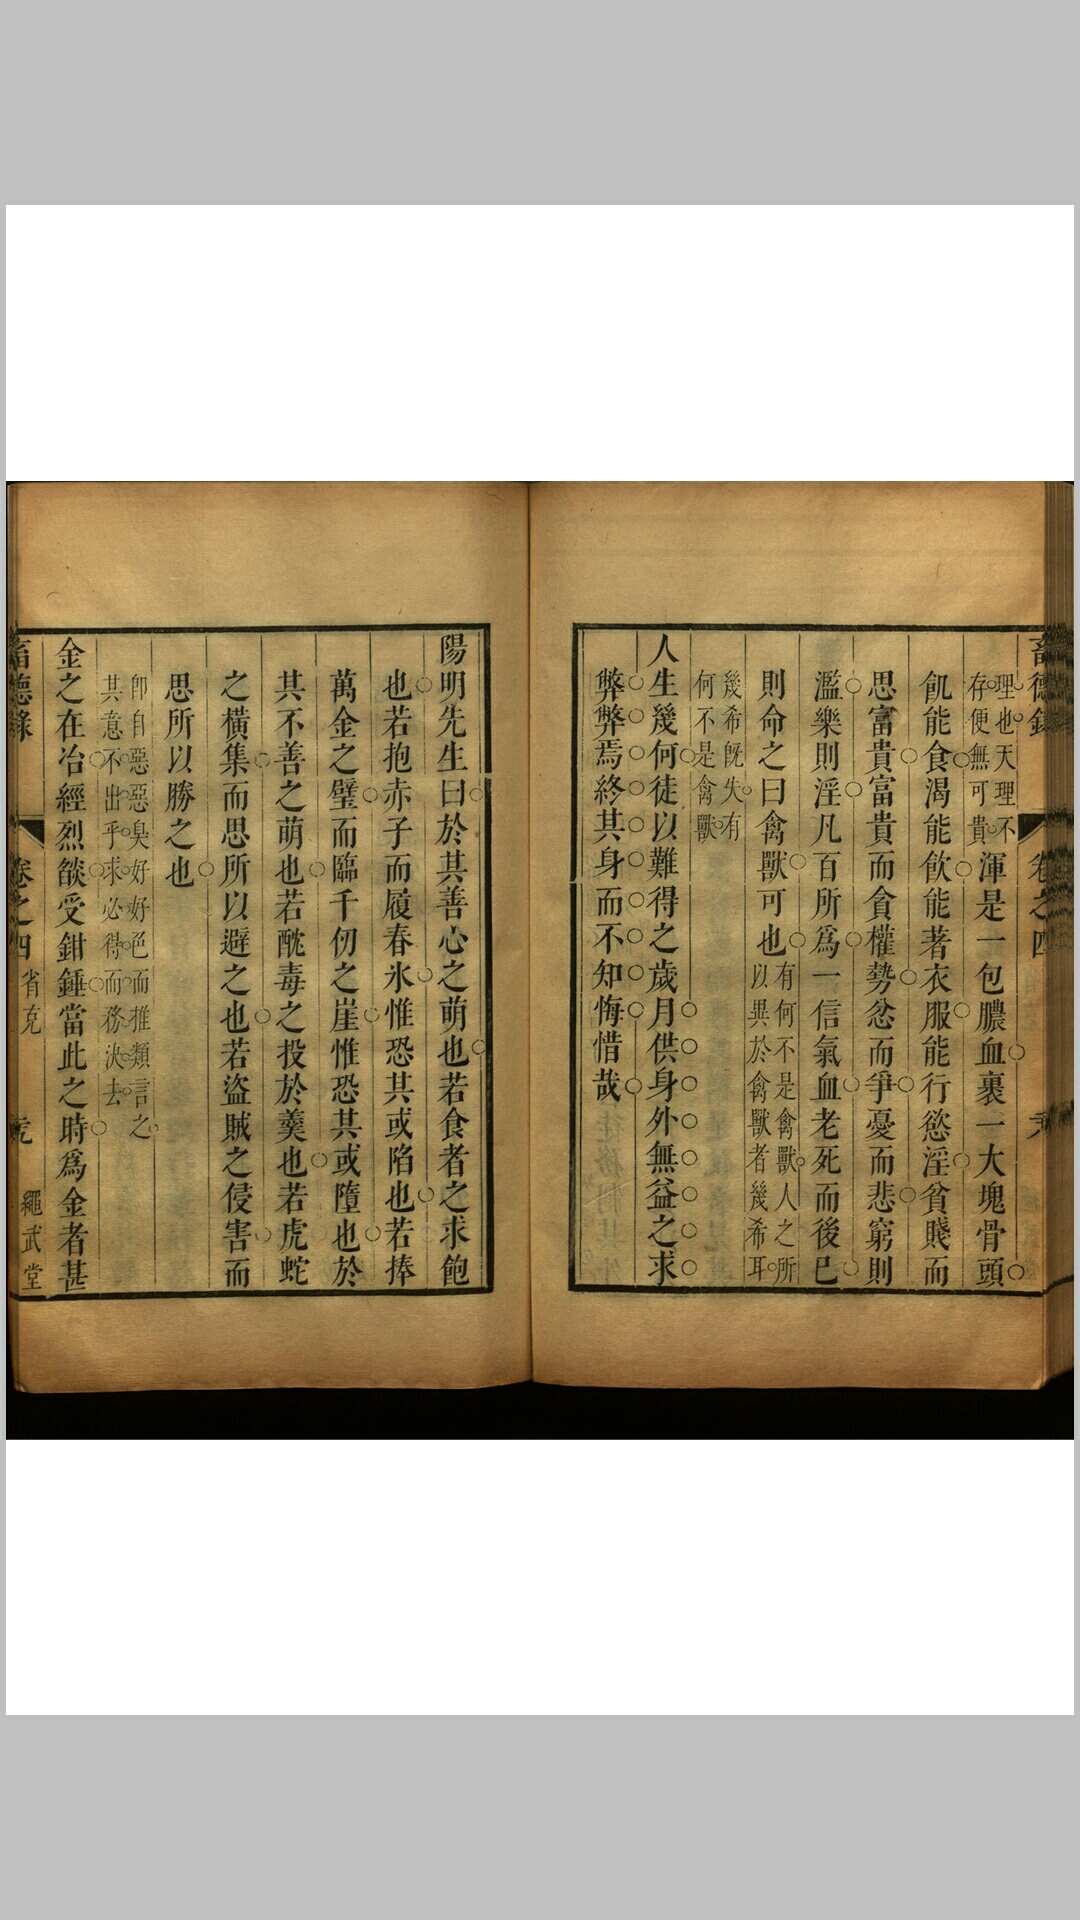 畜德錄
卷之四
理也天理不
存便無可貴
渾是一包膿血裹一大塊骨頭
飢能食渴能飲能著衣服能行慾淫貧賤而
思富貴富貴而貪權勢忿而爭憂而悲窮則
濫樂則淫凡百所為一信氣血老死而後已
則命之曰禽獸可也
有何不是禽獸人之所
以異於禽獸者幾希耳
幾希旣失有
何不是禽獸
人生幾何徒以難得之歲月供身外無益之求
弊弊焉終其身而不知悔惜哉
陽明先生曰於其善心之萌也若食者之求飽
也若抱赤子而履春氷惟恐其或陷也若捧
萬金之璧而臨千仞之崖惟恐其或墮也於
其不善之萌也若酖毒之投於羹也若虎蛇
之橫集而思所以避之也若盜賊之侵害而
思所以勝之也
卽自惡惡臭好好色而推類言之
其意不出乎求必得而務決去
金之在冶經烈燄受鉗錘當此之時爲金者甚
畜德錄
卷之四
省克
繩武堂